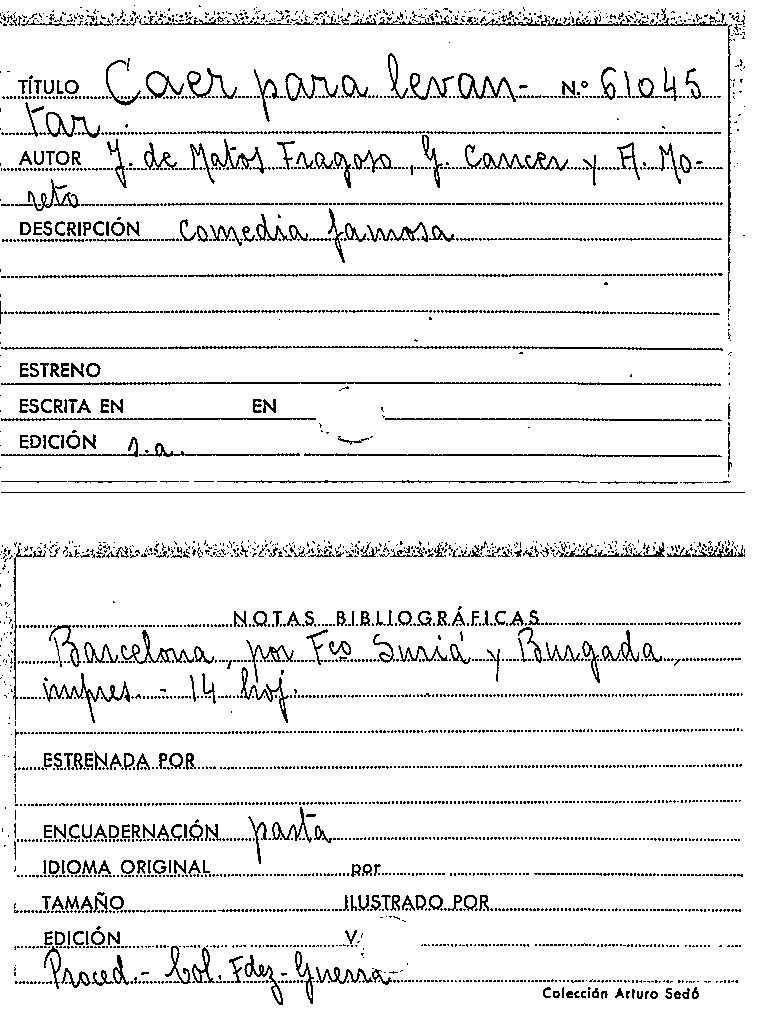 TÍTULO Caer para levan- N.º 61045
tar.
AUTOR J. de Matos Fragoso, G. Cancer y A. Mo-
reto
DESCRIPCIÓN comedia famosa
ESTRENO
ESCRITA EN EN
EDICIÓN s.a.
NOTAS BIBLIOGRÁFICAS
Barcelona, por Fco Suriá y Burgada,
impres. - 14 hoj.
ESTRENADA POR
ENCUADERNACIÓN pasta
IDIOMA ORIGINAL por
TAMAÑO ILUSTRADO POR
EDICIÓN V.
Proced.- Col. Fdez-Guerra-
Colección Arturo Sedó